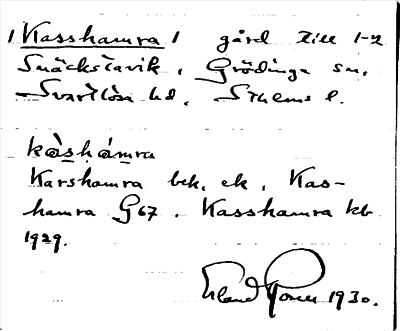 / Kasshamra / gård till 1-2
Snäckstavik, Grödinge sn,
Svartlösa hd, Sthlms l.
kàshámra
Karshamra bek. ek., Kas-
hamra G 67. Kasshamra kb
1929.
Erland 1930.